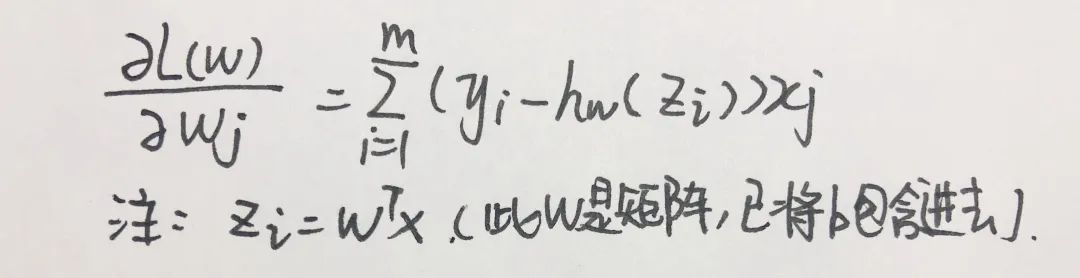 ∂L(w)/∂wj = ∑_{i=1}^{m} (yi - hw(zi))xj
注: zi = wᵀx (此W是矩阵,已将b包含进去).